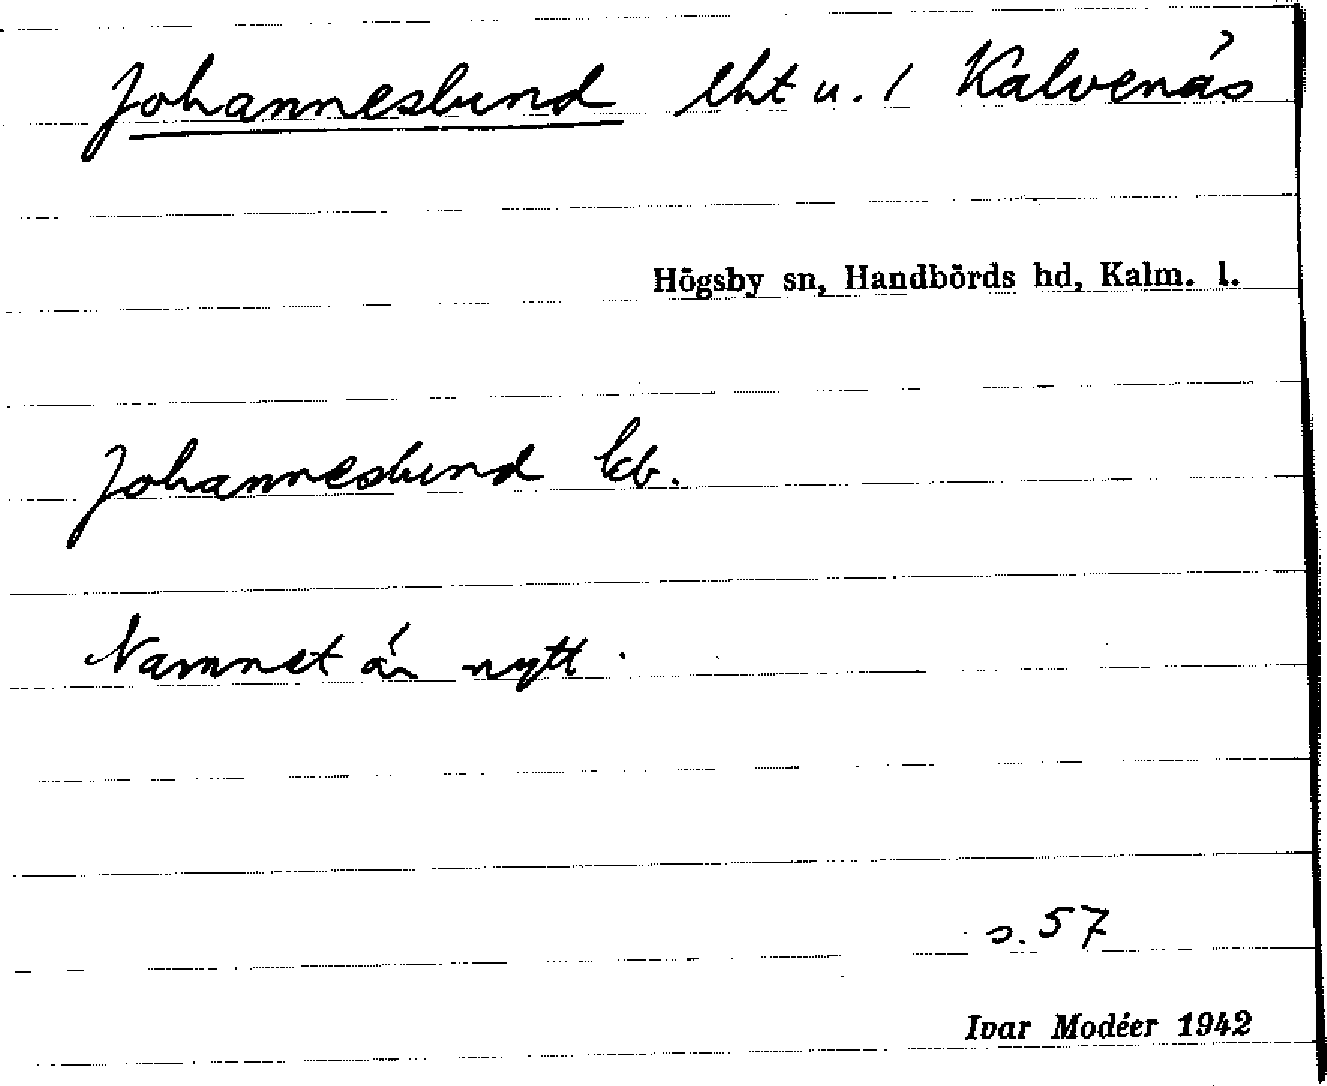 Johanneslund lht u. 1 Kalvenäs
Högsby sn, Handbörds hd, Kalm. l.
Johanneslund kb.
Namnet är nytt.
s. 57
Ivar Modéer 1942